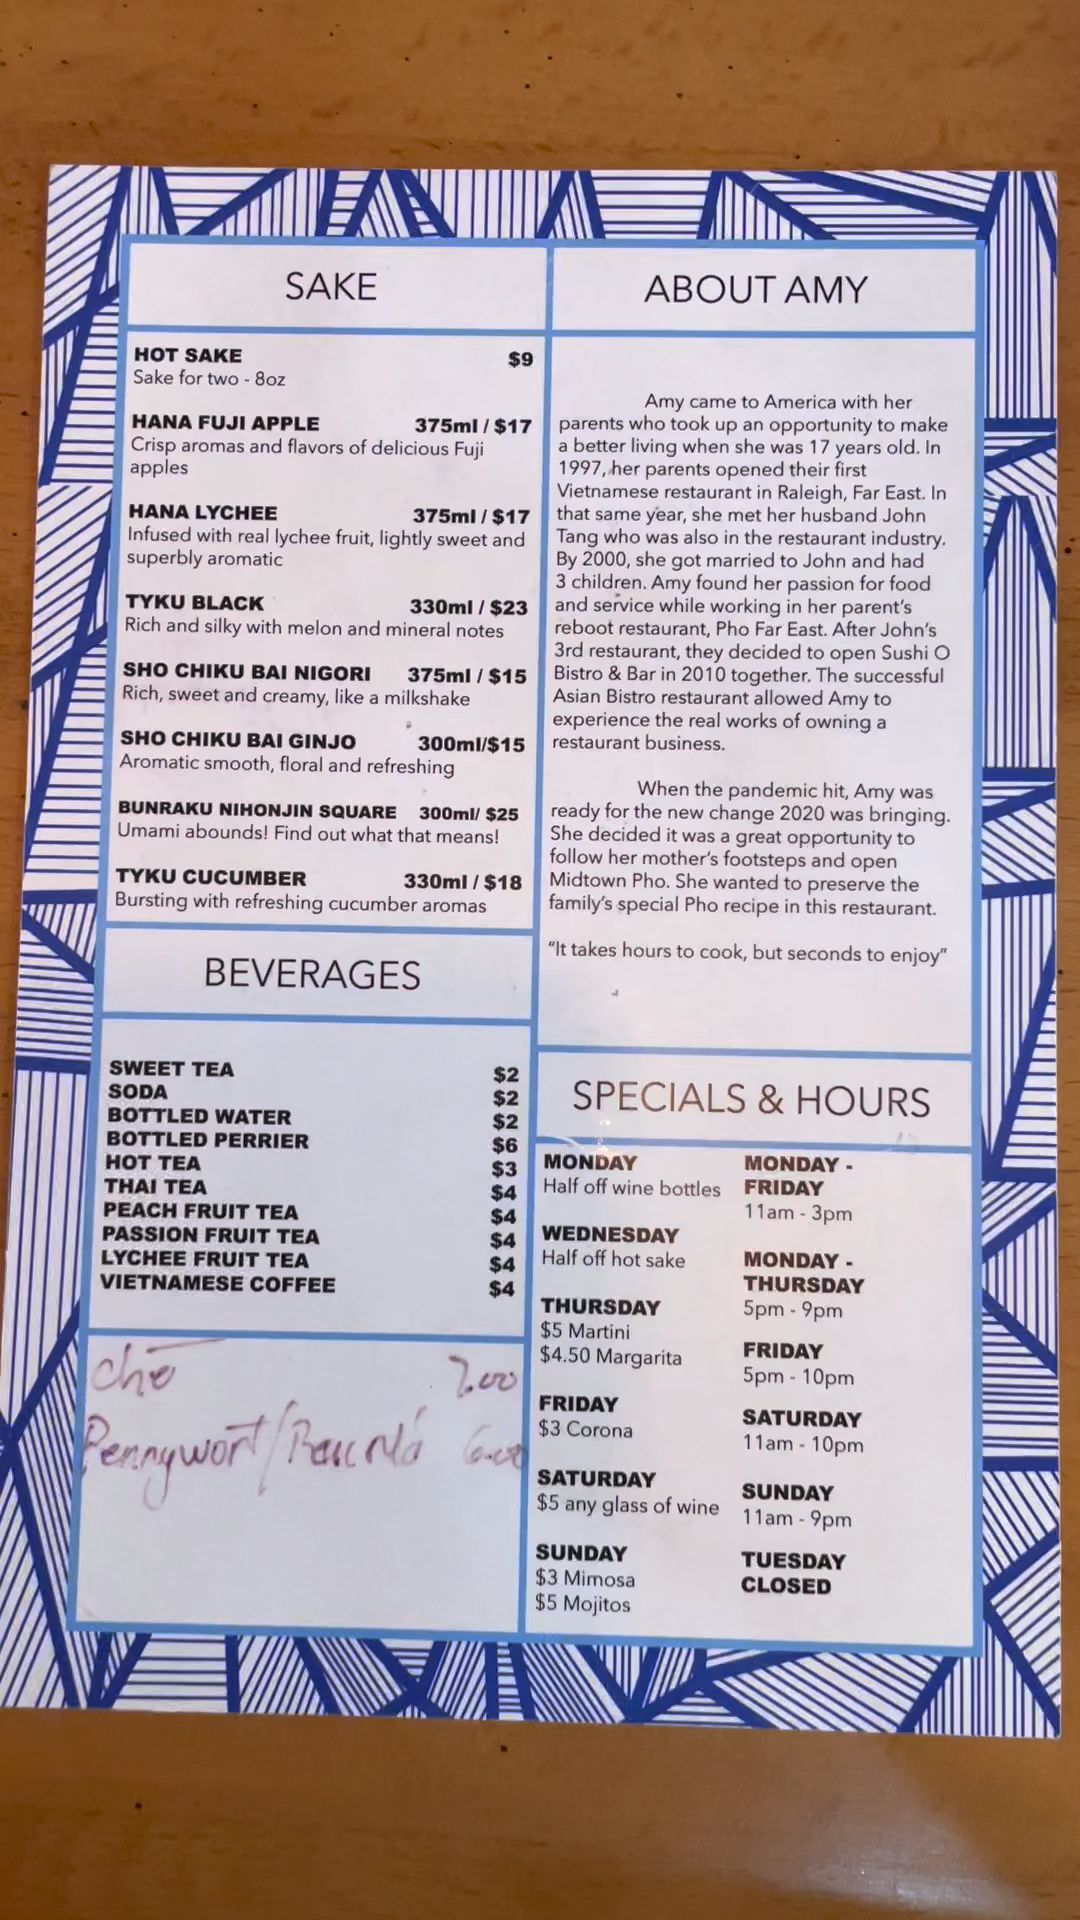 SAKE
HOT SAKE $9
Sake for two - 8oz
HANA FUJI APPLE 375ml / $17
Crisp aromas and flavors of delicious Fuji
apples
HANA LYCHEE 375ml / $17
Infused with real lychee fruit, lightly sweet and
superbly aromatic
TYKU BLACK 330ml / $23
Rich and silky with melon and mineral notes
SHO CHIKU BAI NIGORI 375ml / $15
Rich, sweet and creamy, like a milkshake
SHO CHIKU BAI GINJO 300ml/$15
Aromatic smooth, floral and refreshing
BUNRAKU NIHONJIN SQUARE 300ml/ $25
Umami abounds! Find out what that means!
TYKU CUCUMBER 330ml / $18
Bursting with refreshing cucumber aromas
BEVERAGES
SWEET TEA $2
SODA $2
BOTTLED WATER $2
BOTTLED PERRIER $6
HOT TEA $3
THAI TEA $4
PEACH FRUIT TEA $4
PASSION FRUIT TEA $4
LYCHEE FRUIT TEA $4
VIETNAMESE COFFEE $4
chè 7.00
Pennywort/Rau má 6.00
ABOUT AMY
Amy came to America with her
parents who took up an opportunity to make
a better living when she was 17 years old. In
1997, her parents opened their first
Vietnamese restaurant in Raleigh, Far East. In
that same year, she met her husband John
Tang who was also in the restaurant industry.
By 2000, she got married to John and had
3 children. Amy found her passion for food
and service while working in her parent's
reboot restaurant, Pho Far East. After John's
3rd restaurant, they decided to open Sushi O
Bistro & Bar in 2010 together. The successful
Asian Bistro restaurant allowed Amy to
experience the real works of owning a
restaurant business.
When the pandemic hit, Amy was
ready for the new change 2020 was bringing.
She decided it was a great opportunity to
follow her mother's footsteps and open
Midtown Pho. She wanted to preserve the
family's special Pho recipe in this restaurant.
"It takes hours to cook, but seconds to enjoy"
SPECIALS & HOURS
MONDAY
Half off wine bottles
WEDNESDAY
Half off hot sake
THURSDAY
$5 Martini
$4.50 Margarita
FRIDAY
$3 Corona
SATURDAY
$5 any glass of wine
SUNDAY
$3 Mimosa
$5 Mojitos
MONDAY -
FRIDAY
11am - 3pm
MONDAY -
THURSDAY
5pm - 9pm
FRIDAY
5pm - 10pm
SATURDAY
11am - 10pm
SUNDAY
11am - 9pm
TUESDAY
CLOSED